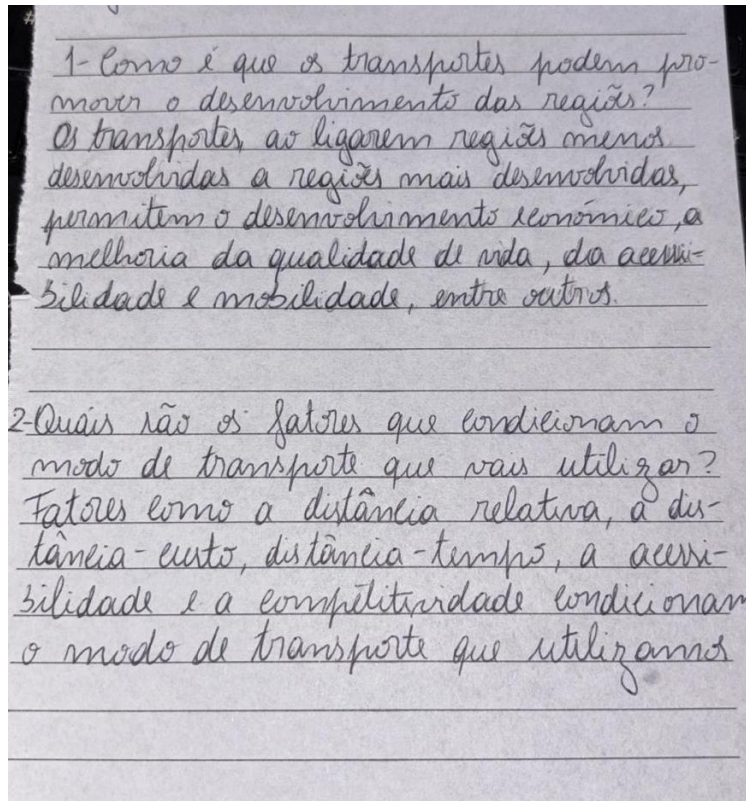 1- Como é que os transportes podem pro-
mover o desenvolvimento das regiões?
Os transportes, ao ligarem regiões menos
desenvolvidas a regiões mais desenvolvidas,
permitem o desenvolvimento económico, a
melhoria da qualidade de vida, da acessi-
bilidade e mobilidade, entre outros.
2-Quais são os fatores que condicionam o
modo de transporte que vais utilizar?
Fatores como a distância relativa, a dis-
tância-custo, distância-tempo, a acessi-
bilidade e a competitividade condicionam
o modo de transporte que utilizamos